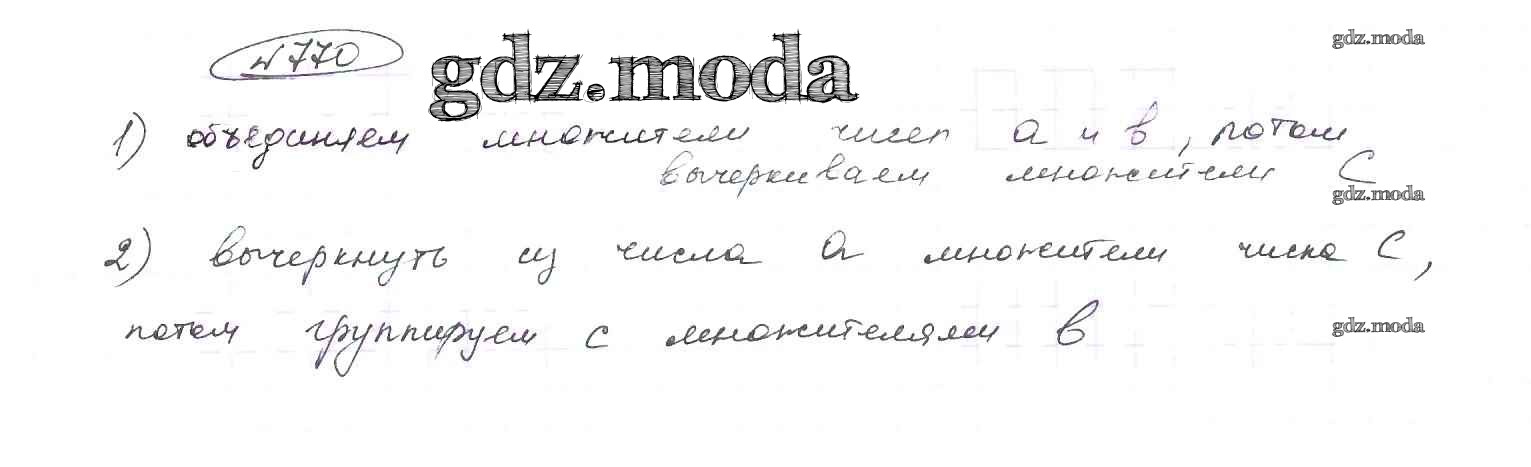 №770 gdz.moda gdz.moda
1) объединяем множители чисел a и b, потом
вычеркиваем множители C
gdz.moda
2) вычеркнуть из числа a множители числа C,
потом группируем с множителями b
gdz.moda